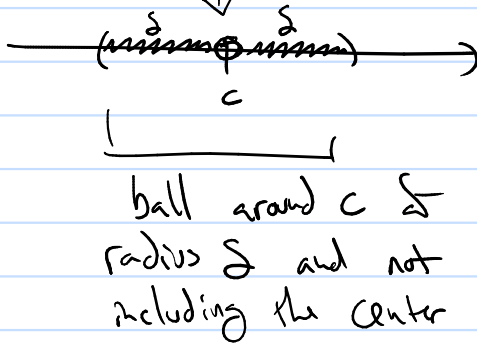 δ δ
c
ball around c of
radius δ and not
including the center